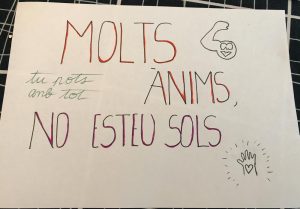 MOLTS
tu pots
amb tot
ÀNIMS,
NO ESTEU SOLS